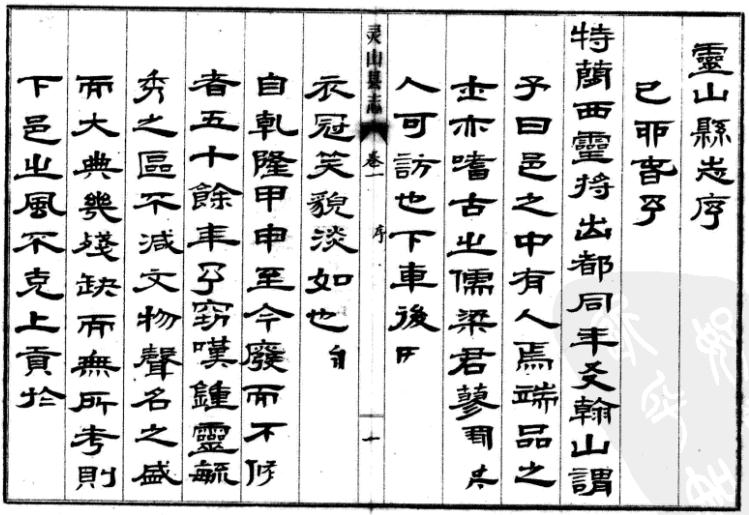 靈山縣志序
已耶昔予
特簡西靈將出都同年翰山謂
予曰邑之中有人焉端品之
士亦嗜古之儒梁君蓼
人可訪也下車後
灵山县志 卷一 序 一
衣冠笑貌淡如也
自乾隆甲申至今廢而不修
者五十餘年予窃嘆鍾靈毓
秀之區不減文物聲名之盛
而大典幾殘缺而無所考則
下邑之風不克上貢於